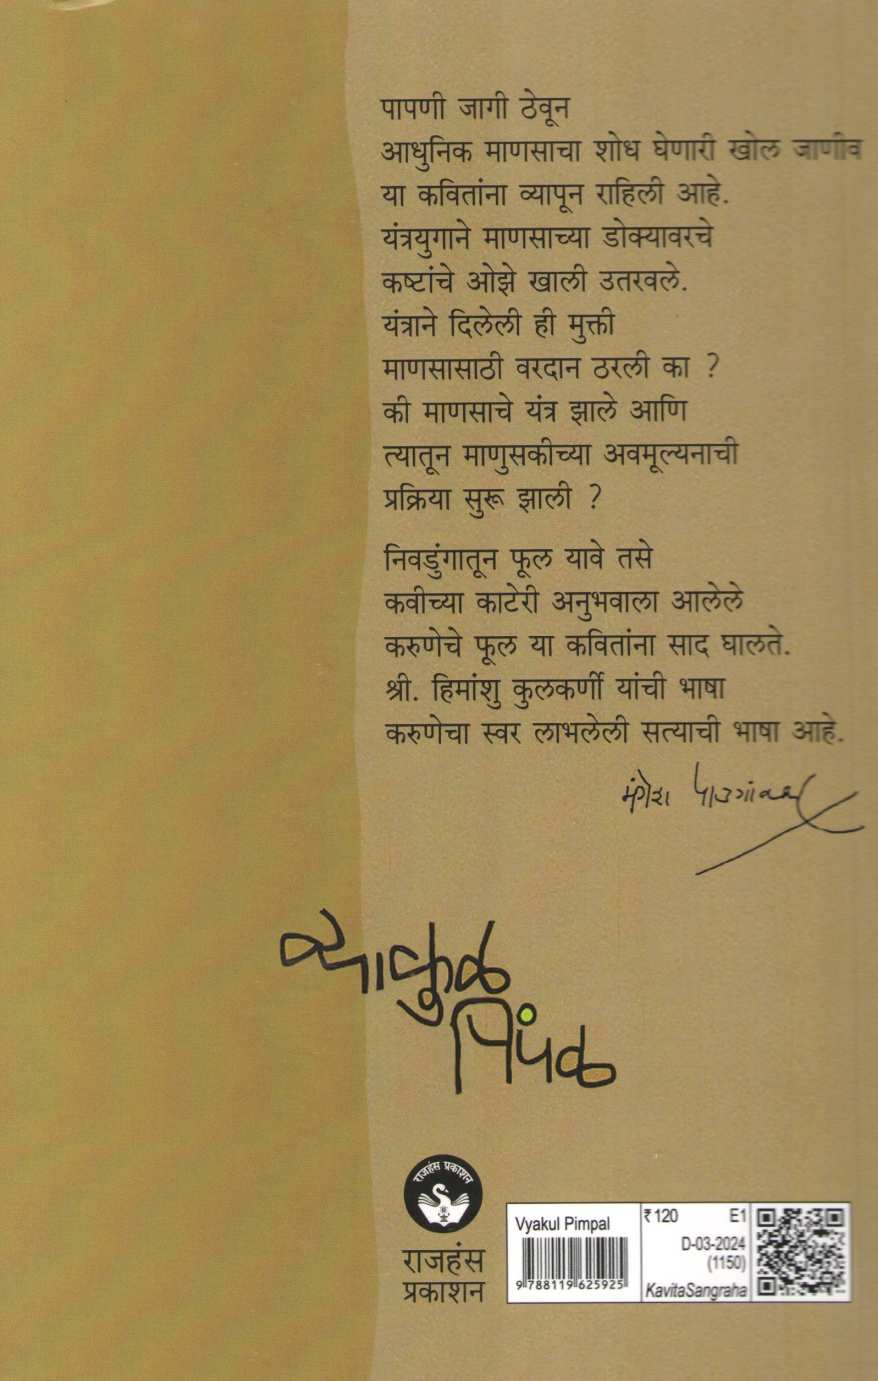 पापणी जागी ठेवून
आधुनिक माणसाचा शोध घेणारी खोल जाणीव
या कवितांना व्यापून राहिली आहे.
यंत्रयुगाने माणसाच्या डोक्यावरचे
कष्टांचे ओझे खाली उतरवले.
यंत्राने दिलेली ही मुक्ती
माणसासाठी वरदान ठरली का ?
की माणसाचे यंत्र झाले आणि
त्यातून माणुसकीच्या अवमूल्यनाची
प्रक्रिया सुरू झाली ?
निवडुंगातून फूल यावे तसे
कवीच्या काटेरी अनुभवाला आलेले
करुणेचे फूल या कवितांना साद घालते.
श्री. हिमांशु कुलकर्णी यांची भाषा
करुणेचा स्वर लाभलेली सत्याची भाषा आहे.
मंगेश पाडगांवकर
व्याकुळ
पिंपळ
राजहंस प्रकाशन
राजहंस
प्रकाशन
Vyakul Pimpal
9 788119 625925
₹120 E1
D-03-2024
(1150)
KavitaSangraha